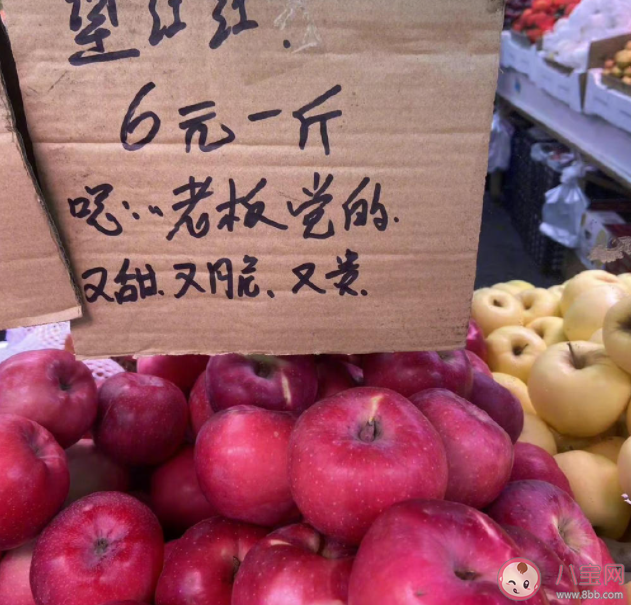 堡红红.
6元一斤
呃:..老板觉的.
又甜.又脆.又贵.
八宝网
www.8bb.com